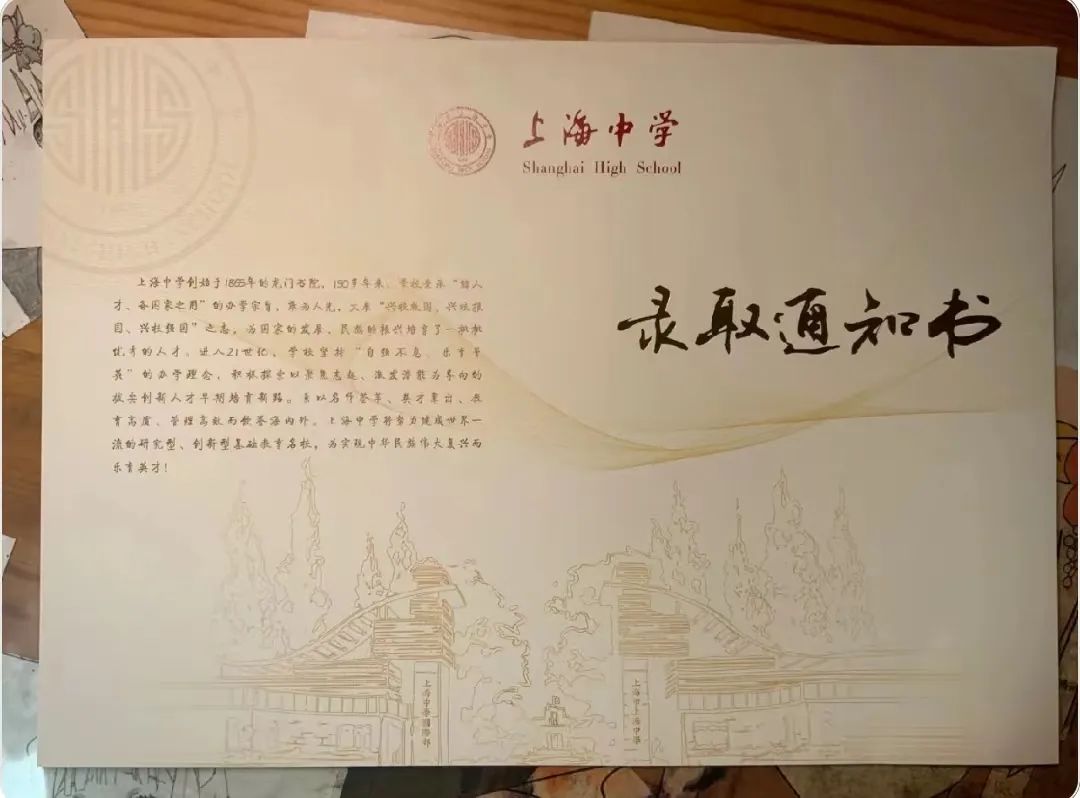 上海中学
Shanghai High School
录取通知书
上海中学创始于1865年的龙门书院，150多年来，学校秉承“储人
才、备国家之用”的办学宗旨，敢为人先，立 “兴校救国、兴校报
国、兴校强国”之志，为国家的发展、民族的振兴培育了一批批
优秀的人才。进入21世纪，学校坚持“自强不息、乐育菁
英”的办学理念，积极探索以聚焦志趣、激发潜能为导向的
拔尖创新人才早期培育新路。素以名师荟萃、英才辈出、教
育高质、管理高效而饮誉海内外。上海中学将努力建成世界一
流的研究型、创新型基础教育名校，为实现中华民族伟大复兴而
乐育英才！
上海中学國際部
上海市上海中學